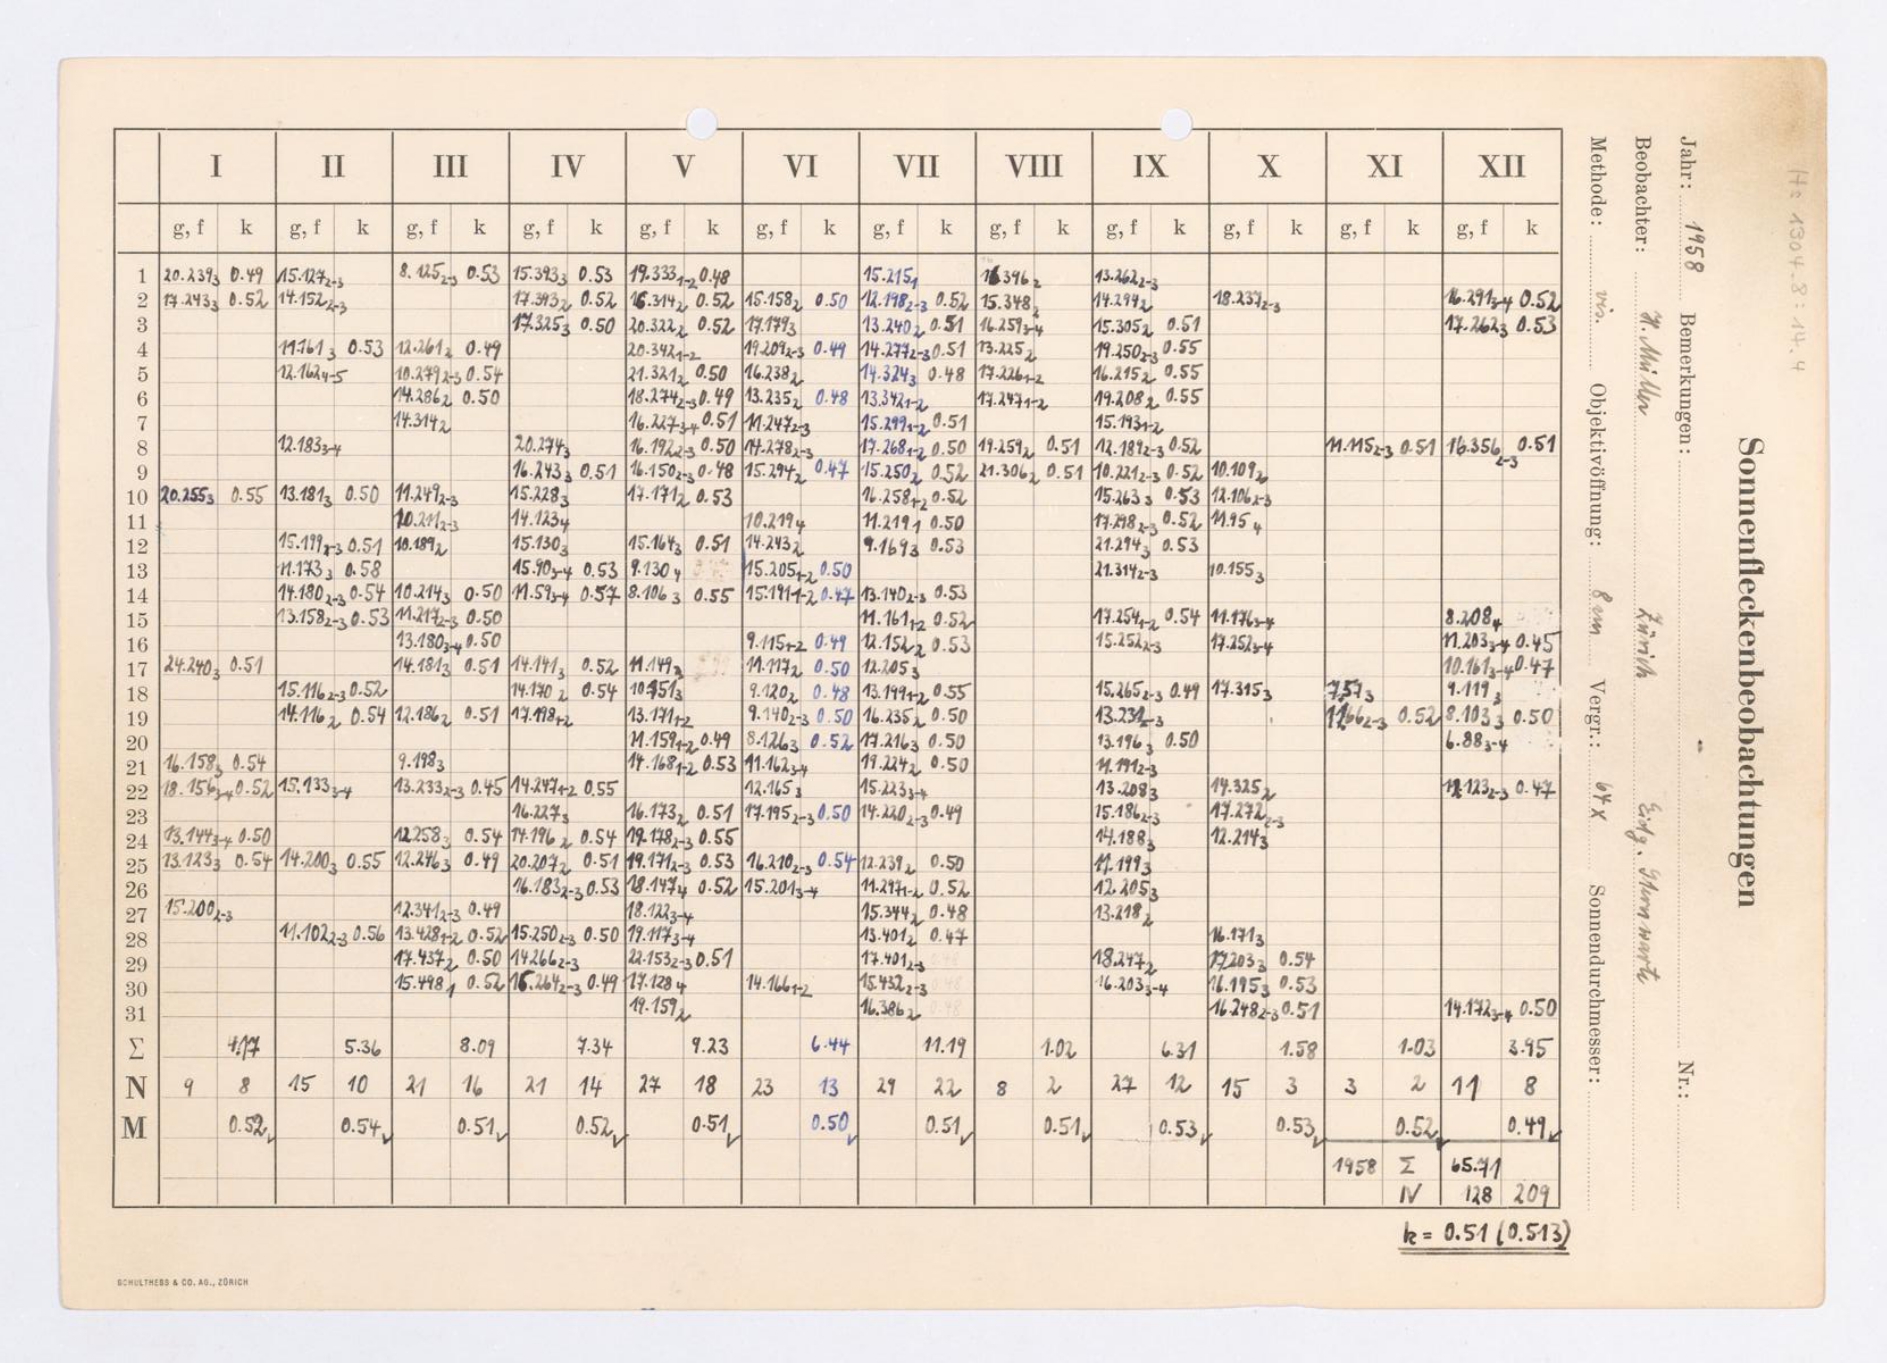 I II III IV V VI VII VIII IX X XI XII
g, f k g, f k g, f k g, f k g, f k g, f k g, f k g, f k g, f k g, f k g, f k g, f k
1 20.239₃ 0.49 15.127₂₋₃ 8.125₂₋₃ 0.53 15.393₃ 0.53 19.333₁₋₂ 0.48 15.215₁ 16.396₂ 13.262₂₋₃
2 17.243₃ 0.52 14.152₂₋₃ 17.393₂ 0.52 16.314₂ 0.52 15.158₂ 0.50 12.198₂₋₃ 0.52 15.348₂ 14.294₂ 18.237₂₋₃ 16.291₃₋₄ 0.52
3 17.325₃ 0.50 20.322₂ 0.52 17.179₃ 13.240₂ 0.51 16.259₃₋₄ 15.305₂ 0.51 17.262₃ 0.53
4 11.161₃ 0.53 12.261₂ 0.49 20.342₁₋₂ 19.209₂₋₃ 0.49 14.277₂₋₃ 0.51 13.225₂ 19.250₂₋₃ 0.55
5 12.162₄₋₅ 10.279₂₋₃ 0.54 21.321₂ 0.50 16.238₂ 14.324₃ 0.48 17.226₁₋₂ 16.215₂ 0.55
6 14.286₂ 0.50 18.274₂₋₃ 0.49 13.235₂ 0.48 13.342₁₋₂ 17.247₁₋₂ 19.208₂ 0.55
7 14.314₂ 16.227₃₋₄ 0.51 11.247₂₋₃ 15.299₁₋₂ 0.51 15.193₁₋₂
8 12.183₃₋₄ 20.274₃ 16.192₂₋₃ 0.50 14.278₂₋₃ 17.268₁₋₂ 0.50 19.259₂ 0.51 12.189₂₋₃ 0.52 11.115₂₋₃ 0.51 16.356₂₋₃ 0.51
9 16.243₃ 0.51 16.150₂₋₃ 0.48 15.294₂ 0.47 15.250₂ 0.52 21.306₂ 0.51 10.221₂₋₃ 0.52 10.109₂
10 20.255₃ 0.55 13.181₃ 0.50 11.249₂₋₃ 15.228₃ 17.171₂ 0.53 16.258₁₋₂ 0.52 15.263₃ 0.53 12.106₂₋₃
11 10.211₂₋₃ 14.123₄ 10.219₄ 11.219₁ 0.50 17.298₂₋₃ 0.52 11.95₄
12 15.199₂₋₃ 0.51 10.189₂ 15.130₃ 15.164₃ 0.51 14.243₂ 9.169₃ 0.53 21.294₃ 0.53
13 11.173₃ 0.58 15.90₃₋₄ 0.53 9.130₄ 15.205₁₋₂ 0.50 21.314₂₋₃ 10.155₃
14 14.180₂₋₃ 0.54 10.214₃ 0.50 11.59₃₋₄ 0.57 8.106₃ 0.55 15.191₁₋₂ 0.47 13.140₂₋₃ 0.53
15 13.158₂₋₃ 0.53 11.217₂₋₃ 0.50 11.161₁₋₂ 0.52 17.254₁₋₂ 0.54 11.176₃₋₄ 8.208₄
16 13.180₃₋₄ 0.50 9.115₁₋₂ 0.49 12.152₂ 0.53 15.252₂₋₃ 17.252₃₋₄ 11.203₃₋₄ 0.45
17 24.240₃ 0.51 14.181₃ 0.51 14.141₃ 0.52 11.149₃ 11.117₂ 0.50 12.205₃ 10.161₃₋₄ 0.47
18 15.116₂₋₃ 0.52 14.170₂ 0.54 10.151₃ 9.120₂ 0.48 13.199₁₋₂ 0.55 15.265₂₋₃ 0.49 17.315₃ 7.57₃ 9.119₃
19 14.116₂ 0.54 12.186₂ 0.51 17.198₁₋₂ 13.171₁₋₂ 9.140₂₋₃ 0.50 16.235₂ 0.50 13.231₂₋₃ 11.66₂₋₃ 0.52 8.103₃ 0.50
20 11.159₁₋₂ 0.49 8.126₃ 0.52 17.216₃ 0.50 13.196₃ 0.50 6.88₃₋₄
21 16.158₃ 0.54 9.198₃ 14.168₁₋₂ 0.53 11.162₃₋₄ 19.224₂ 0.50 11.191₂₋₃
22 18.156₃₋₄ 0.52 15.133₃₋₄ 13.233₂₋₃ 0.45 14.247₁₋₂ 0.55 12.165₃ 15.223₃₋₄ 13.208₃ 14.325₂ 12.123₂₋₃ 0.47
23 16.227₃ 16.173₂ 0.51 17.195₂₋₃ 0.50 14.220₂₋₃ 0.49 15.186₂₋₃ 17.272₂₋₃
24 13.144₃₋₄ 0.50 12.258₃ 0.54 14.196₂ 0.54 19.178₂₋₃ 0.55 14.188₃ 12.214₃
25 13.123₃ 0.54 14.200₃ 0.55 12.246₃ 0.49 20.207₂ 0.51 19.171₂₋₃ 0.53 16.210₂₋₃ 0.54 12.239₂ 0.50 11.199₃
26 16.183₂₋₃ 0.53 18.147₄ 0.52 15.201₃₋₄ 11.297₁₋₂ 0.52 12.205₃
27 15.200₂₋₃ 12.341₂₋₃ 0.49 18.122₃₋₄ 15.344₂ 0.48 13.218₂
28 11.102₂₋₃ 0.56 13.428₁₋₂ 0.52 15.250₂₋₃ 0.50 19.117₃₋₄ 13.401₂ 0.47 16.171₃
29 17.437₂ 0.50 14.266₂₋₃ 22.153₂₋₃ 0.51 17.401₂₋₃ 18.247₂ 17.203₃ 0.54
30 15.498₁ 0.52 16.264₂₋₃ 0.49 17.128₄ 14.166₁₋₂ 15.432₂₋₃ 16.203₃₋₄ 16.195₃ 0.53
31 19.159₂ 16.386₂ 16.248₂₋₃ 0.51 14.172₃₋₄ 0.50
Σ 4.17 5.36 8.09 7.34 9.23 6.44 11.19 1.02 6.31 1.58 1.03 3.95
N 9 8 15 10 21 16 21 14 27 18 23 13 29 22 8 2 27 12 15 3 3 2 11 8
M 0.52 0.54 0.51 0.52 0.51 0.50 0.51 0.51 0.53 0.53 0.52 0.49
1958 Σ 65.71
N 128 209
k = 0.51 (0.513)
SCHULTHESS & CO. AG., ZÜRICH
Sonnenfleckenbeobachtungen
Jahr: 1958 Bemerkungen: Nr.:
Beobachter: H. Müller Zürich Eidg. Sternwarte
Methode: vis. Objektivöffnung: 8 cm Vergr.: 64 x Sonnendurchmesser:
Hs 1304.8:14.4